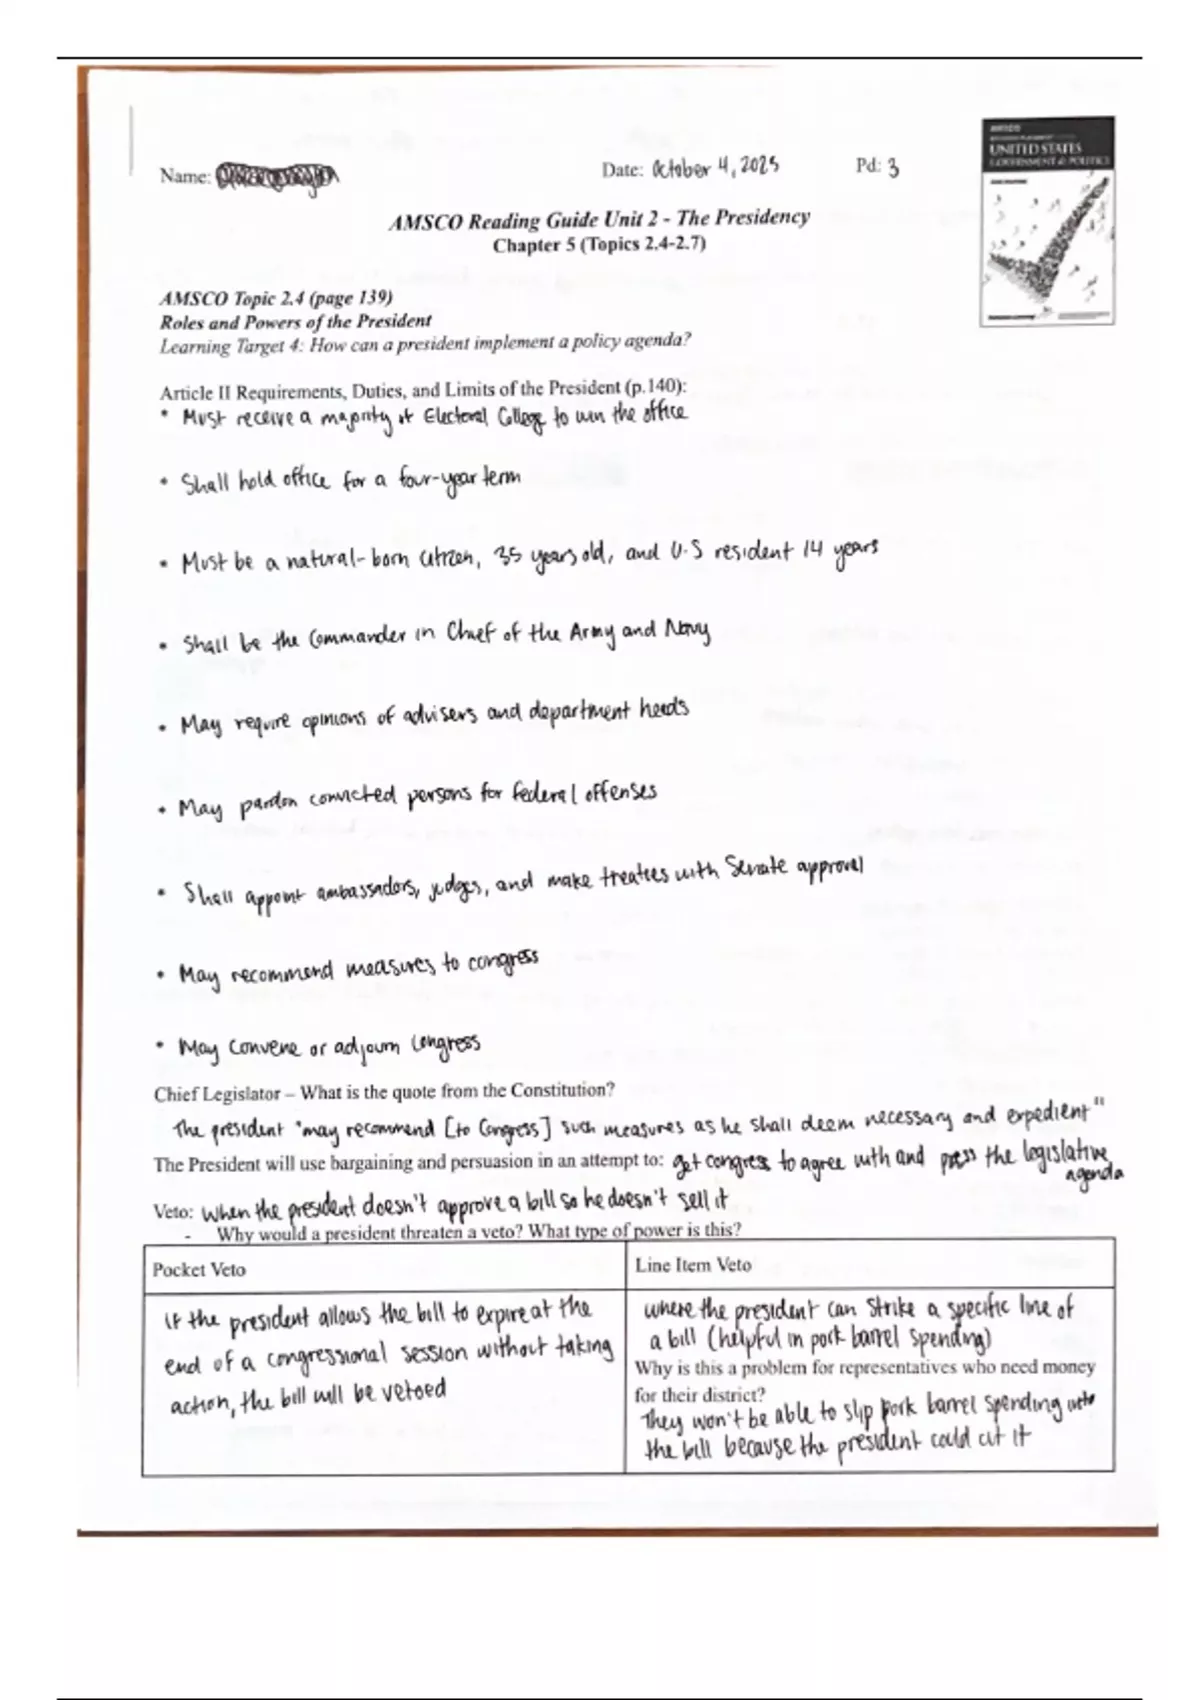 Name:
Date: October 4, 2025
Pd: 3
UNITED STATES
GOVERNMENT & POLITICS
AMSCO Reading Guide Unit 2 - The Presidency
Chapter 5 (Topics 2.4-2.7)
AMSCO Topic 2.4 (page 139)
Roles and Powers of the President
Learning Target 4: How can a president implement a policy agenda?
Article II Requirements, Duties, and Limits of the President (p.140):
• Must receive a majority of Electoral College to win the office
• Shall hold office for a four-year term
• Must be a natural-born citizen, 35 years old, and U.S resident 14 years
• Shall be the Commander in Chief of the Army and Navy
• May require opinions of advisers and department heads
• May pardon convicted persons for federal offenses
• Shall appoint ambassadors, judges, and make treaties with Senate approval
• May recommend measures to congress
• May convene or adjourn Congress
Chief Legislator – What is the quote from the Constitution?
The president "may recommend [to Congress] such measures as he shall deem necessary and expedient"
The President will use bargaining and persuasion in an attempt to: get congress to agree with and press the legislative
agenda
Veto: when the president doesn't approve a bill so he doesn't sell it
- Why would a president threaten a veto? What type of power is this?
Pocket Veto
If the president allows the bill to expire at the
end of a congressional session without taking
action, the bill will be vetoed
Line Item Veto
where the president can strike a specific line of
a bill (helpful in pork barrel spending)
Why is this a problem for representatives who need money
for their district?
They won't be able to slip pork barrel spending into
the bill because the president could cut it